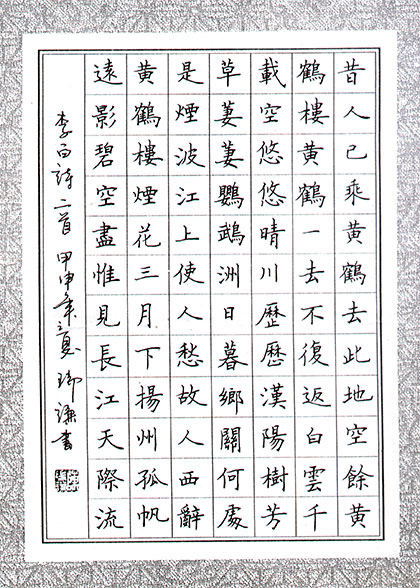 昔人已乘黃鶴去此地空餘黃
鶴樓黃鶴一去不復返白雲千
載空悠悠晴川歷歷漢陽樹芳
草萋萋鸚鵡洲日暮鄉關何處
是煙波江上使人愁故人西辭
黃鶴樓煙花三月下揚州孤帆
遠影碧空盡惟見長江天際流
李白詩二首 甲申年之夏 書